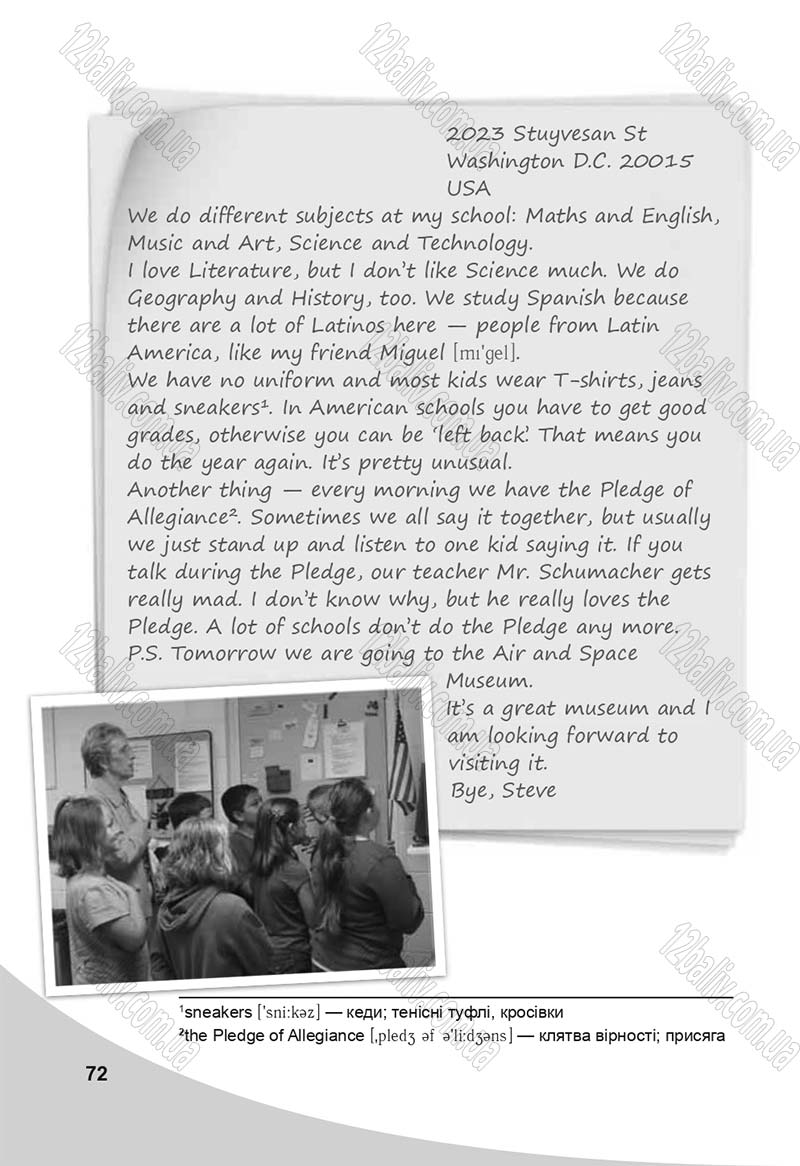 2023 Stuyvesan St
Washington D.C. 20015
USA
We do different subjects at my school: Maths and English,
Music and Art, Science and Technology.
I love Literature, but I don't like Science much. We do
Geography and History, too. We study Spanish because
there are a lot of Latinos here — people from Latin
America, like my friend Miguel [mɪ'gel].
We have no uniform and most kids wear T-shirts, jeans
and sneakers¹. In American schools you have to get good
grades, otherwise you can be 'left back'. That means you
do the year again. It's pretty unusual.
Another thing — every morning we have the Pledge of
Allegiance². Sometimes we all say it together, but usually
we just stand up and listen to one kid saying it. If you
talk during the Pledge, our teacher Mr. Schumacher gets
really mad. I don't know why, but he really loves the
Pledge. A lot of schools don't do the Pledge any more.
P.S. Tomorrow we are going to the Air and Space
Museum.
It's a great museum and I
am looking forward to
visiting it.
Bye, Steve
¹sneakers ['sni:kəz] — кеди; тенісні туфлі, кросівки
²the Pledge of Allegiance [ˌpledʒ əf ə'li:dʒəns] — клятва вірності; присяга
72
12baliv.com.ua
12baliv.com.ua
12baliv.com.ua
12baliv.com.ua
12baliv.com.ua
12baliv.com.ua
12baliv.com.ua
12baliv.com.ua
12baliv.com.ua
12baliv.com.ua
12baliv.com.ua
12baliv.com.ua